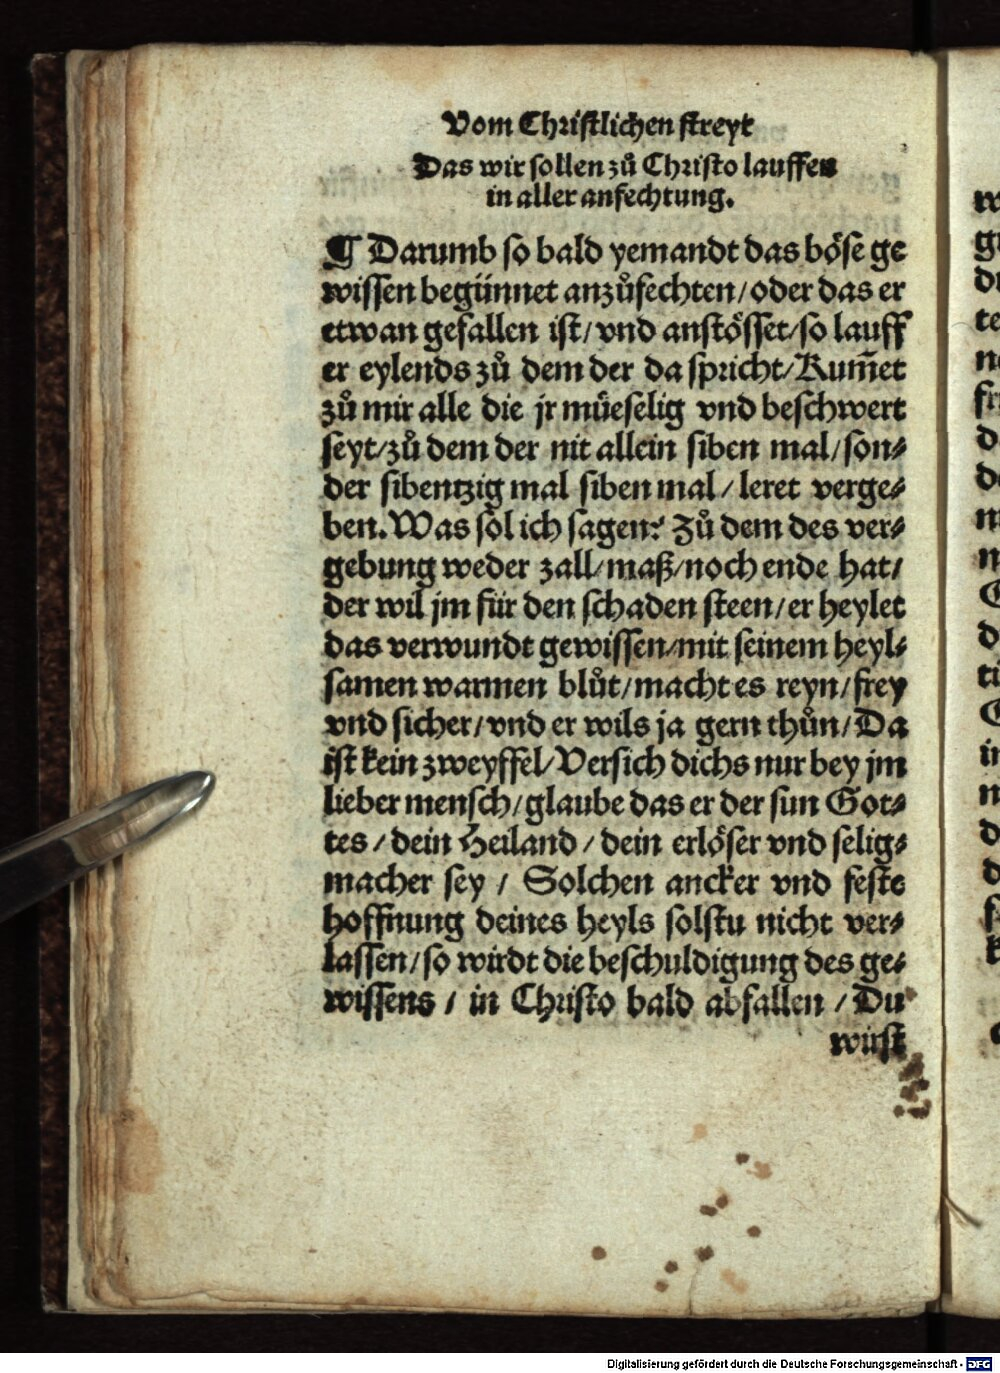 Vom Christlichen streyt
Das wir sollen zů Christo lauffen
in aller anfechtung.
¶ Darumb so bald yemandt das böse ge
wissen begünnet anzůfechten/oder das er
etwan gefallen ist/vnd anstösset/so lauff
er eylends zů dem der da spricht/Kum̃et
zů mir alle die jr müeselig vnd beschwert
seyt/zů dem der nit allein siben mal/son⸗
der sibentzig mal siben mal/leret verge⸗
ben. Was sol ich sagen? Zů dem des ver⸗
gebung weder zall/maß/noch ende hat/
der wil jm für den schaden steen/er heylet
das verwundt gewissen/mit seinem heyl⸗
samen warmen blůt/macht es reyn/frey
vnd sicher/vnd er wils ja gern thůn/Da
ist kein zweyffel/Versich dichs nur bey jm
lieber mensch/glaube das er der sun Got⸗
tes/dein Heiland/dein erlöser vnd selig⸗
macher sey/Solchen ancker vnd feste
hoffnung deines heyls solstu nicht ver⸗
lassen/so wirdt die beschuldigung des ge⸗
wissens/in Christo bald abfallen/Du
wirst
Digitalisierung gefördert durch die Deutsche Forschungsgemeinschaft - DFG